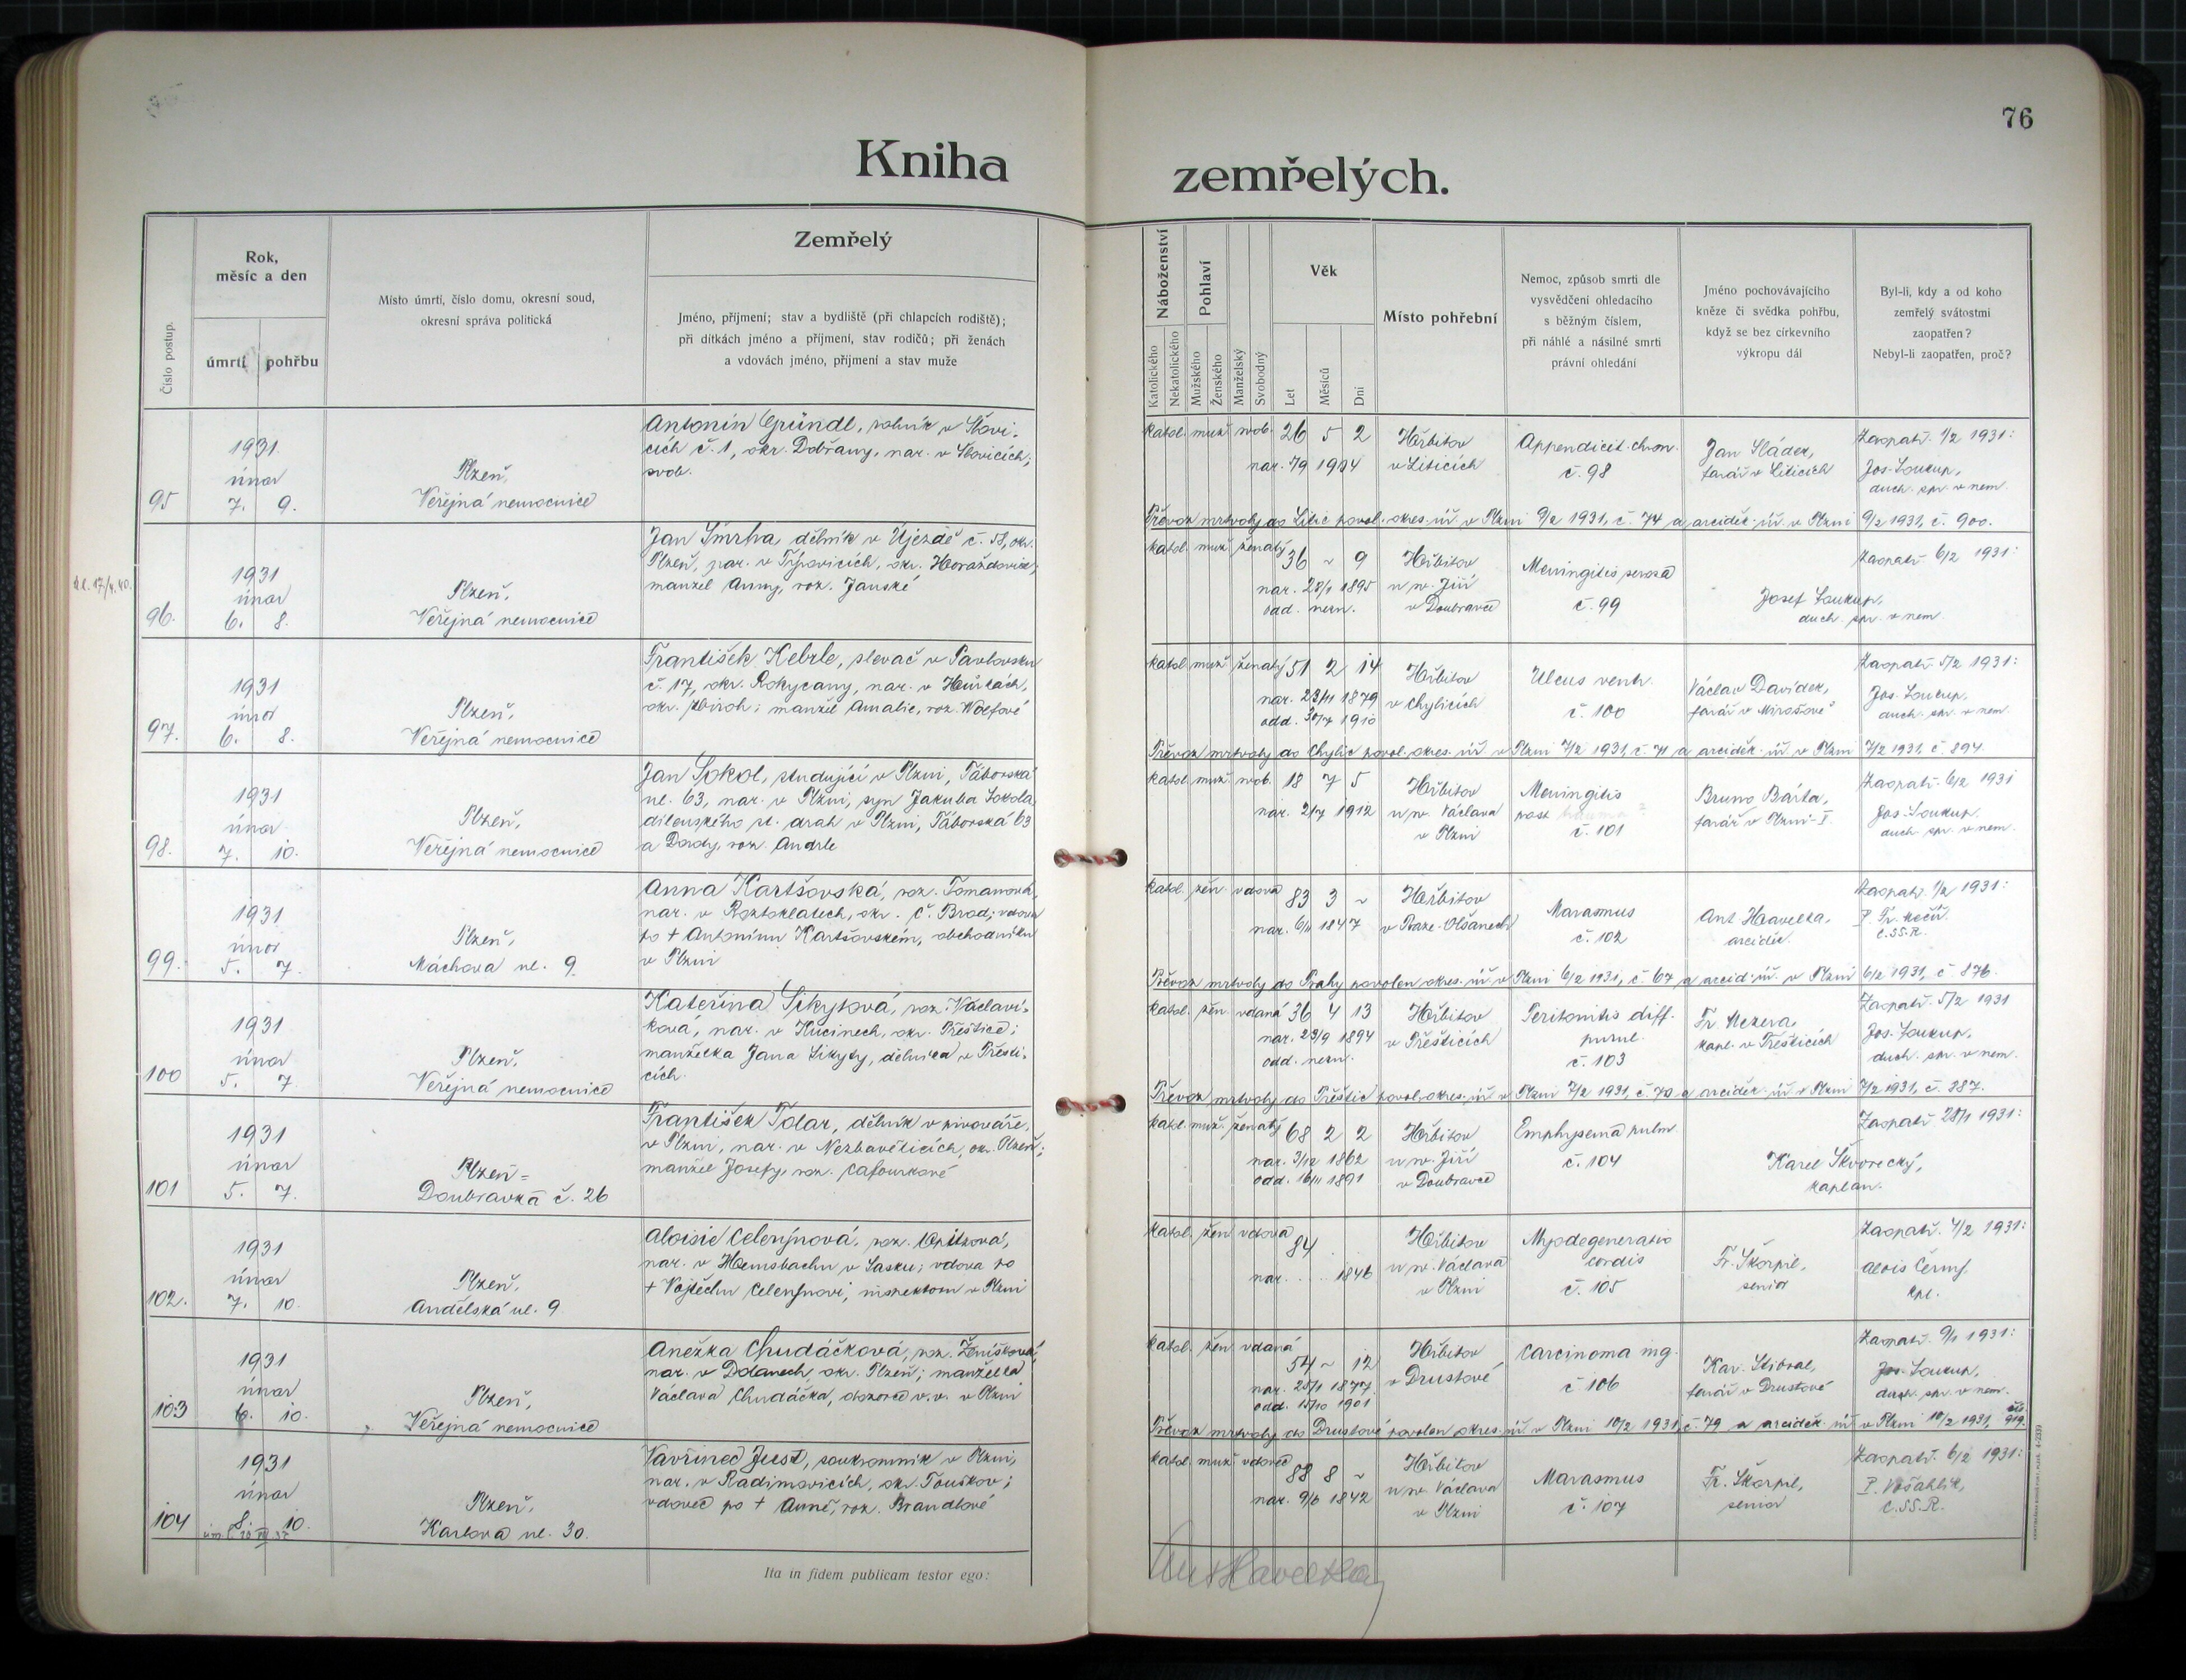 76
Kniha zemřelých.
Číslo postup.
Rok,
měsíc a den
úmrtí
pohřbu
Místo úmrtí, číslo domu, okresní soud,
okresní správa politická
Zemřelý
Jméno, příjmení; stav a bydliště (při chlapcích rodiště);
při dítkách jméno a příjmení, stav rodičů; při ženách
a vdovách jméno, příjmení a stav muže
Náboženství
Katolického
Nekatolického
Pohlaví
Mužského
Ženského
Manželský
Svobodný
Věk
Let
Měsíců
Dní
Místo pohřební
Nemoc, způsob smrti dle
vysvědčení ohledacího
s běžným číslem,
při náhlé a násilné smrti
právní ohledání
Jméno pochovávajícího
kněze či svědka pohřbu,
když se bez církevního
výkropu dál
Byl-li, kdy a od koho
zemřelý svátostmi
zaopatřen?
Nebyl-li zaopatřen, proč?
95
1931
únor
7. 9.
Plzeň,
Veřejná nemocnice
Antonín Gründl, rolník v Šlovi-
cích č. 1, okr. Dobřany, nar. v Šlovicích;
svob.
katol. muž. svob. 26 5 2
nar. 5/9 1904
Hřbitov
v Liticích
Appendicit. chron.
č. 98
Jan Sládek,
farář v Liticích
Zaopatř. 1/2 1931:
Jos. Soukup,
duch. spr. v nem.
Převoz mrtvoly do Litic povol. okres. úř. v Plzni 9/2 1931, č. 74 a arciděk. úř. v Plzni 9/2 1931, č. 900.
96.
1931
únor
6. 8.
Plzeň,
Veřejná nemocnice
Jan Šmrha, dělník v Újezdě č. 58, okr.
Plzeň, nar. v okr. Horažďovice;
manžel Anny, roz. Janské
katol. muž. ženatý 36 ~ 9
nar. 28/1 1895
odd. nezn.
Hřbitov
u sv. Jiří
v Doubravce
Meningitis serosa
č. 99
Josef Soukup,
duch. spr. v nem.
Zaopatř. 6/2 1931:
97.
1931
únor
6. 8.
Plzeň,
Veřejná nemocnice
František Kebrle, slevač v Pavlovsku
č. 17, okr. Rokycany, nar. v Hůrkách,
okr. Zbiroh; manžel Amalie, roz. Wolfové
katol. muž. ženatý 51 2 14
nar. 23/11 1879
odd. 30/7 1910
Hřbitov
v Chylicích
Ulcus ventr.
č. 100
Václav Davídek,
farář v Mirošově
Zaopatř. 5/2 1931:
Jos. Soukup,
duch. spr. v nem.
Převoz mrtvoly do Chylic povol. okres. úř. v Plzni 7/2 1931, č. 71 a arciděk. úř. v Plzni 7/2 1931, č. 894.
98.
1931
únor
7. 10.
Plzeň,
Veřejná nemocnice
Jan Sokol, studující v Plzni, Táborská
ul. 63, nar. v Plzni, syn Jakuba Sokola,
dílenského st. drah v Plzni, Táborská 63
a roz. Andrle
katol. muž. svob. 18 7 5
nar. 2/7 1912
Hřbitov
u sv. Václava
v Plzni
Meningitis
post
č. 101
Bruno Bárta,
farář v Plzni-I.
Zaopatř. 6/2 1931
Jos. Soukup,
duch. spr. v nem.
99.
1931
únor
5. 7.
Plzeň,
Máchova ul. 9.
Anna Kartšovská, roz. Tomanová,
nar. v Roztoklatech, okr. Č. Brod; vdova
po + Antonínu Kartšovském, obchodníku
v Plzni
katol. žen. vdova 83 3 ~
nar. 6/11 1847
Hřbitov
v Praze-Olšanech
Marasmus
č. 102
Ant. Havelka,
arciděk.
Zaopatř. 1/2 1931:
P. Fr. Kočí
C.SS.R.
Převoz mrtvoly do Prahy povolen okres. úř. v Plzni 6/2 1931, č. 67 a arcid. úř. v Plzni 6/2 1931, č. 876.
100
1931
únor
5. 7.
Plzeň,
Veřejná nemocnice
Kateřina Sikytová, roz. Václaví-
ková, nar. v Kucinech, okr. Přeštice;
manželka Jana Sikyty, dělníka v Přešti-
cích.
katol. žen. vdaná 36 4 13
nar. 23/9 1894
odd. nezn.
Hřbitov
v Přešticích
Peritonitis diff.
purul.
č. 103
Fr. Nezera,
kapl. v Přešticích
Zaopatř. 5/2 1931
Jos. Soukup,
duch. spr. v nem.
Převoz mrtvoly do Přeštic povol. okres. úř. v Plzni 7/2 1931, č. 70 a arciděk. úř. v Plzni 7/2 1931, č. 887.
101
1931
únor
5. 7.
Plzeň-
Doubravka č. 26
František Tolar, dělník v pivováře,
v Plzni, nar. v Nezbavěticích, okr. Plzeň;
manžel Josefy, roz. Cafourkové
katol. muž. ženatý 68 2 2
nar. 3/12 1862
odd. 16/11 1891
Hřbitov
u sv. Jiří
v Doubravce
Emphysema pulm.
č. 104
Karel Škvorecký,
kaplan.
Zaopatř. 28/1 1931:
102.
1931
únor
7. 10.
Plzeň,
Andělská ul. 9.
Aloisie Celerýnová, roz. Opitzová,
nar. v Hemsbachu v Sasku; vdova po
+ Vojtěchu Celerýnovi, inspektoru v Plzni
katol. žen. vdova 84
nar. . . 1846
Hřbitov
u sv. Václava
v Plzni
Myodegeneratio
cordis
č. 105
Fr. Škorpil,
senior
Zaopatř. 4/2 1931:
Alois Černý,
kpl.
103
1931
únor
6. 10.
Plzeň,
Veřejná nemocnice
Anežka Chudáčková, roz. Ženíšková,
nar. v Dolanech, okr. Plzeň; manželka
Václava Chudáčka, dozorce v. v. v Plzni
katol. žen. vdaná 54 ~ 12
nar. 25/1 1877
odd. 15/10 1901
Hřbitov
v Druztové
Carcinoma ing.
č. 106
Kar. Stibral,
farář v Druztové
Zaopatř. 9/1 1931:
Jos. Soukup,
duch. spr. v nem.
Převoz mrtvoly do Druztové povolen okres. úř. v Plzni 10/2 1931, č. 79 a arciděk. úř. v Plzni 10/2 1931, čís. 919.
104
1931
únor
8. 10.
Plzeň,
Karlova ul. 30.
Vavřinec Just, soukromník v Plzni,
nar. v Radimovicích, okr. Touškov;
vdovec po + Anně, roz. Brandlové
katol. muž. vdovec 88 8 ~
nar. 9/6 1842
Hřbitov
u sv. Václava
v Plzni
Marasmus
č. 107
Fr. Škorpil,
senior
Zaopatř. 6/2 1931:
P. Vošahlík,
C.SS.R.
Ita in fidem publicam testor ego:
Ant Havelka